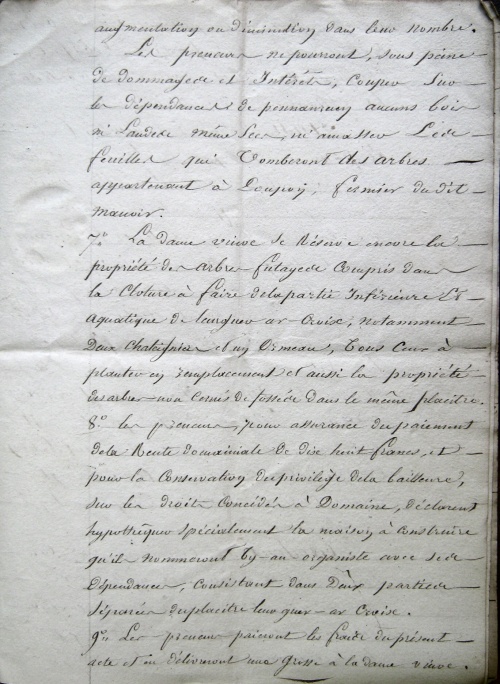 augmentation ou diminution dans leur nombre.
Les preneurs ne pourront, sous peine
de dommages et Intérêts, couper sur
les dépendances de pennanrun aucuns bois
ni Landes même sec, ni amasser Les
feuilles qui Tomberont des arbres
appartenant à fermier du dit
manoir.
7º La dame veuve se Réserve encore la
propriété des arbres futayes Compris dans
la Cloture à faire de la partie Inférieure Et
aquatique de leurguer ar Croix, notamment
Deux Chataigniers et un Ormeau, Tous Ceux à
planter en remplacement et aussi la propriété
des arbres non cernés de fossés dans le même placitre.
8º les preneurs, pour assurance du paiement
de la Rente domaniale de dix huit francs, et
pour la Conservation du privilège de la bailleure,
sur les droits Concédés à Domaine, déclarent
hypothéquer spécialement la maison à construire
qu'ils nommeront Ty-an organiste avec ses
Dépendances, Consistant dans Deux parties
séparées du placitre leurguer-ar Croix.
9º Les preneurs paieront les frais du présent
acte et en délivreront une grosse à la dame veuve.